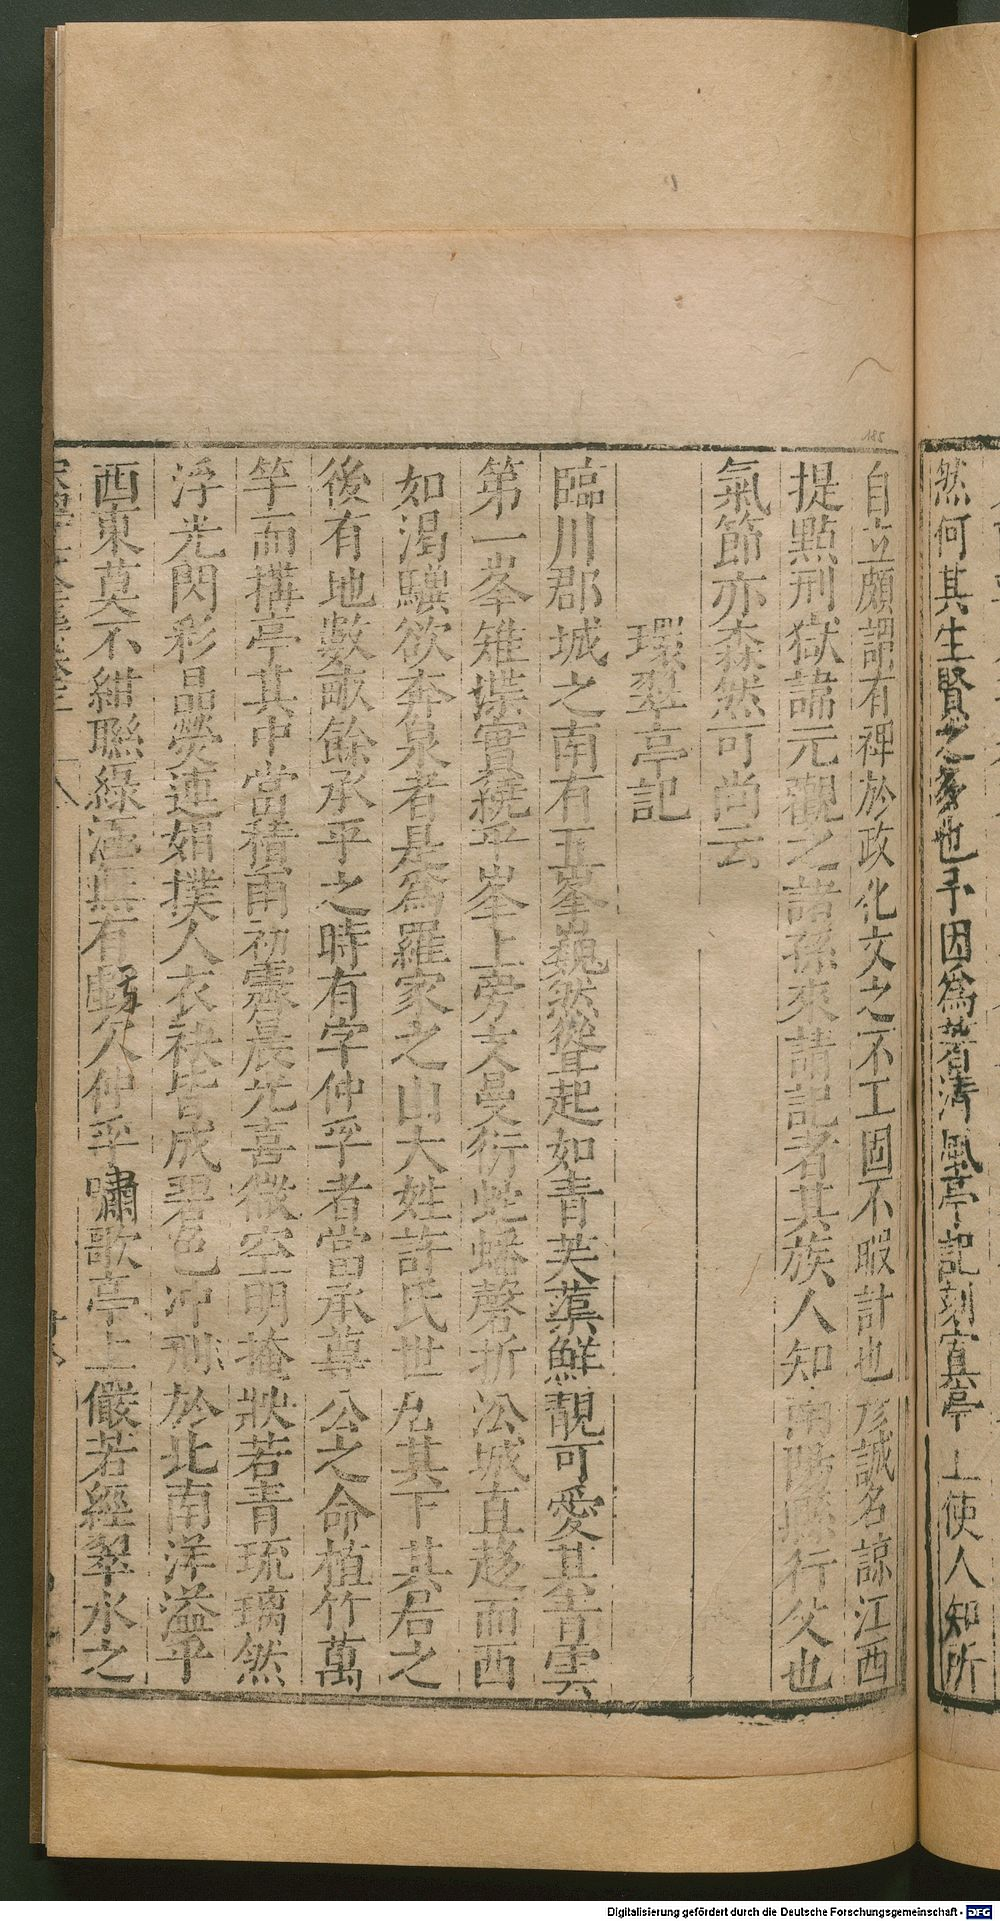 然何其生賢之多也予因爲著清風亭記刻寘亭上使人知所
自立頗謂有裨於政化文之不工固不暇計也彦誠名諒江西
提點刑獄諱元觀之諸孫來請記者其族人知南陽縣行父也
氣節亦森然可尚云
環翠亭記
臨川郡城之南有五峯巍然聳起如青芙蕖鮮靚可愛其青雲
第一峯雉堞實繞乎峯上旁支曼衍蛇蟠磬折㳂城直趍而西
如渴驥欲奔泉者是爲羅家之山大姓許氏世凥其下其居之
後有地數畝餘承平之時有字仲孚者當承尊公之命植竹萬
竿而構亭其中當積雨初霽晨光熹微空明掩映若青琉璃然
浮光閃彩晶熒連娟撲人衣袂皆成碧色冲瀜於北南洋溢乎
西東莫不紺聯綠涵無有虧欠仲孚嘯歌亭上儼若經翠水之
185
Digitalisierung gefördert durch die Deutsche Forschungsgemeinschaft - DFG